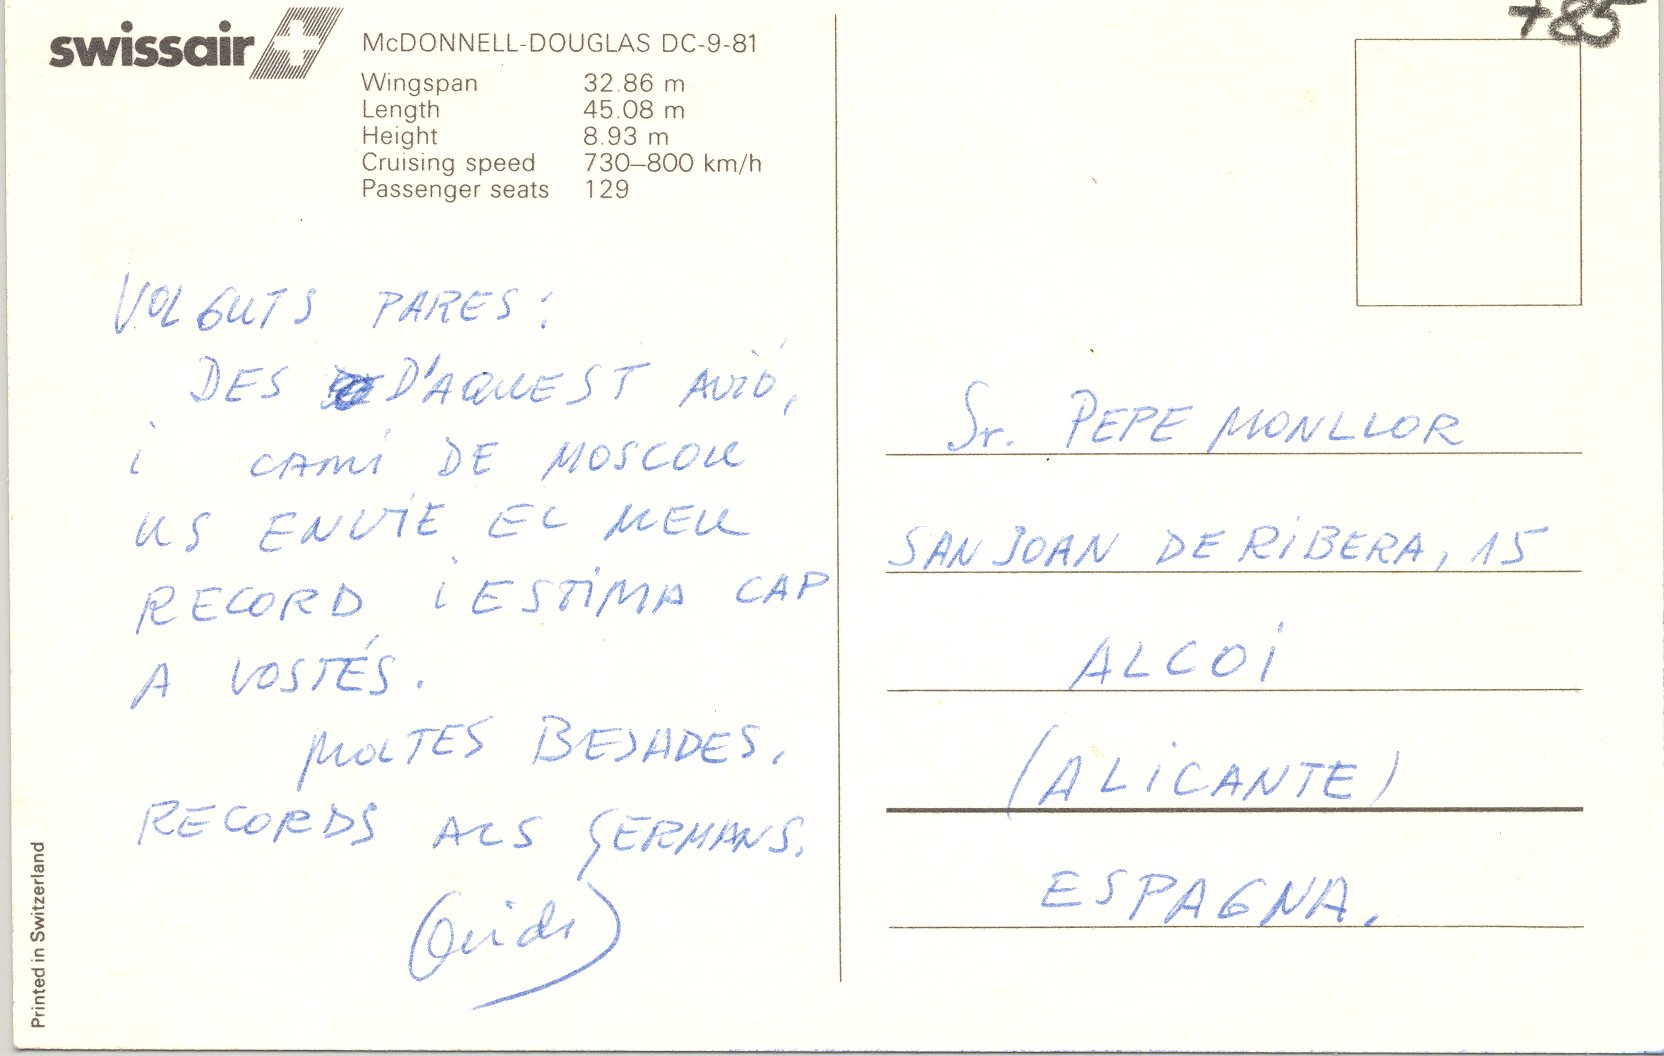 swissair
McDONNELL-DOUGLAS DC-9-81
Wingspan 32.86 m
Length 45.08 m
Height 8.93 m
Cruising speed 730–800 km/h
Passenger seats 129
VOLGUTS PARES:
DES D'AQUEST AVIÓ,
i CAMÍ DE MOSCOU
US ENVIE EL MEU
RECORD i ESTIMA CAP
A VOSTÉS.
MOLTES BESADES.
RECORDS ALS GERMANS.
Printed in Switzerland
785
Sr. PEPE MONLLOR
SAN JOAN DE RIBERA, 15
ALCOI
(ALICANTE)
ESPAGNA.